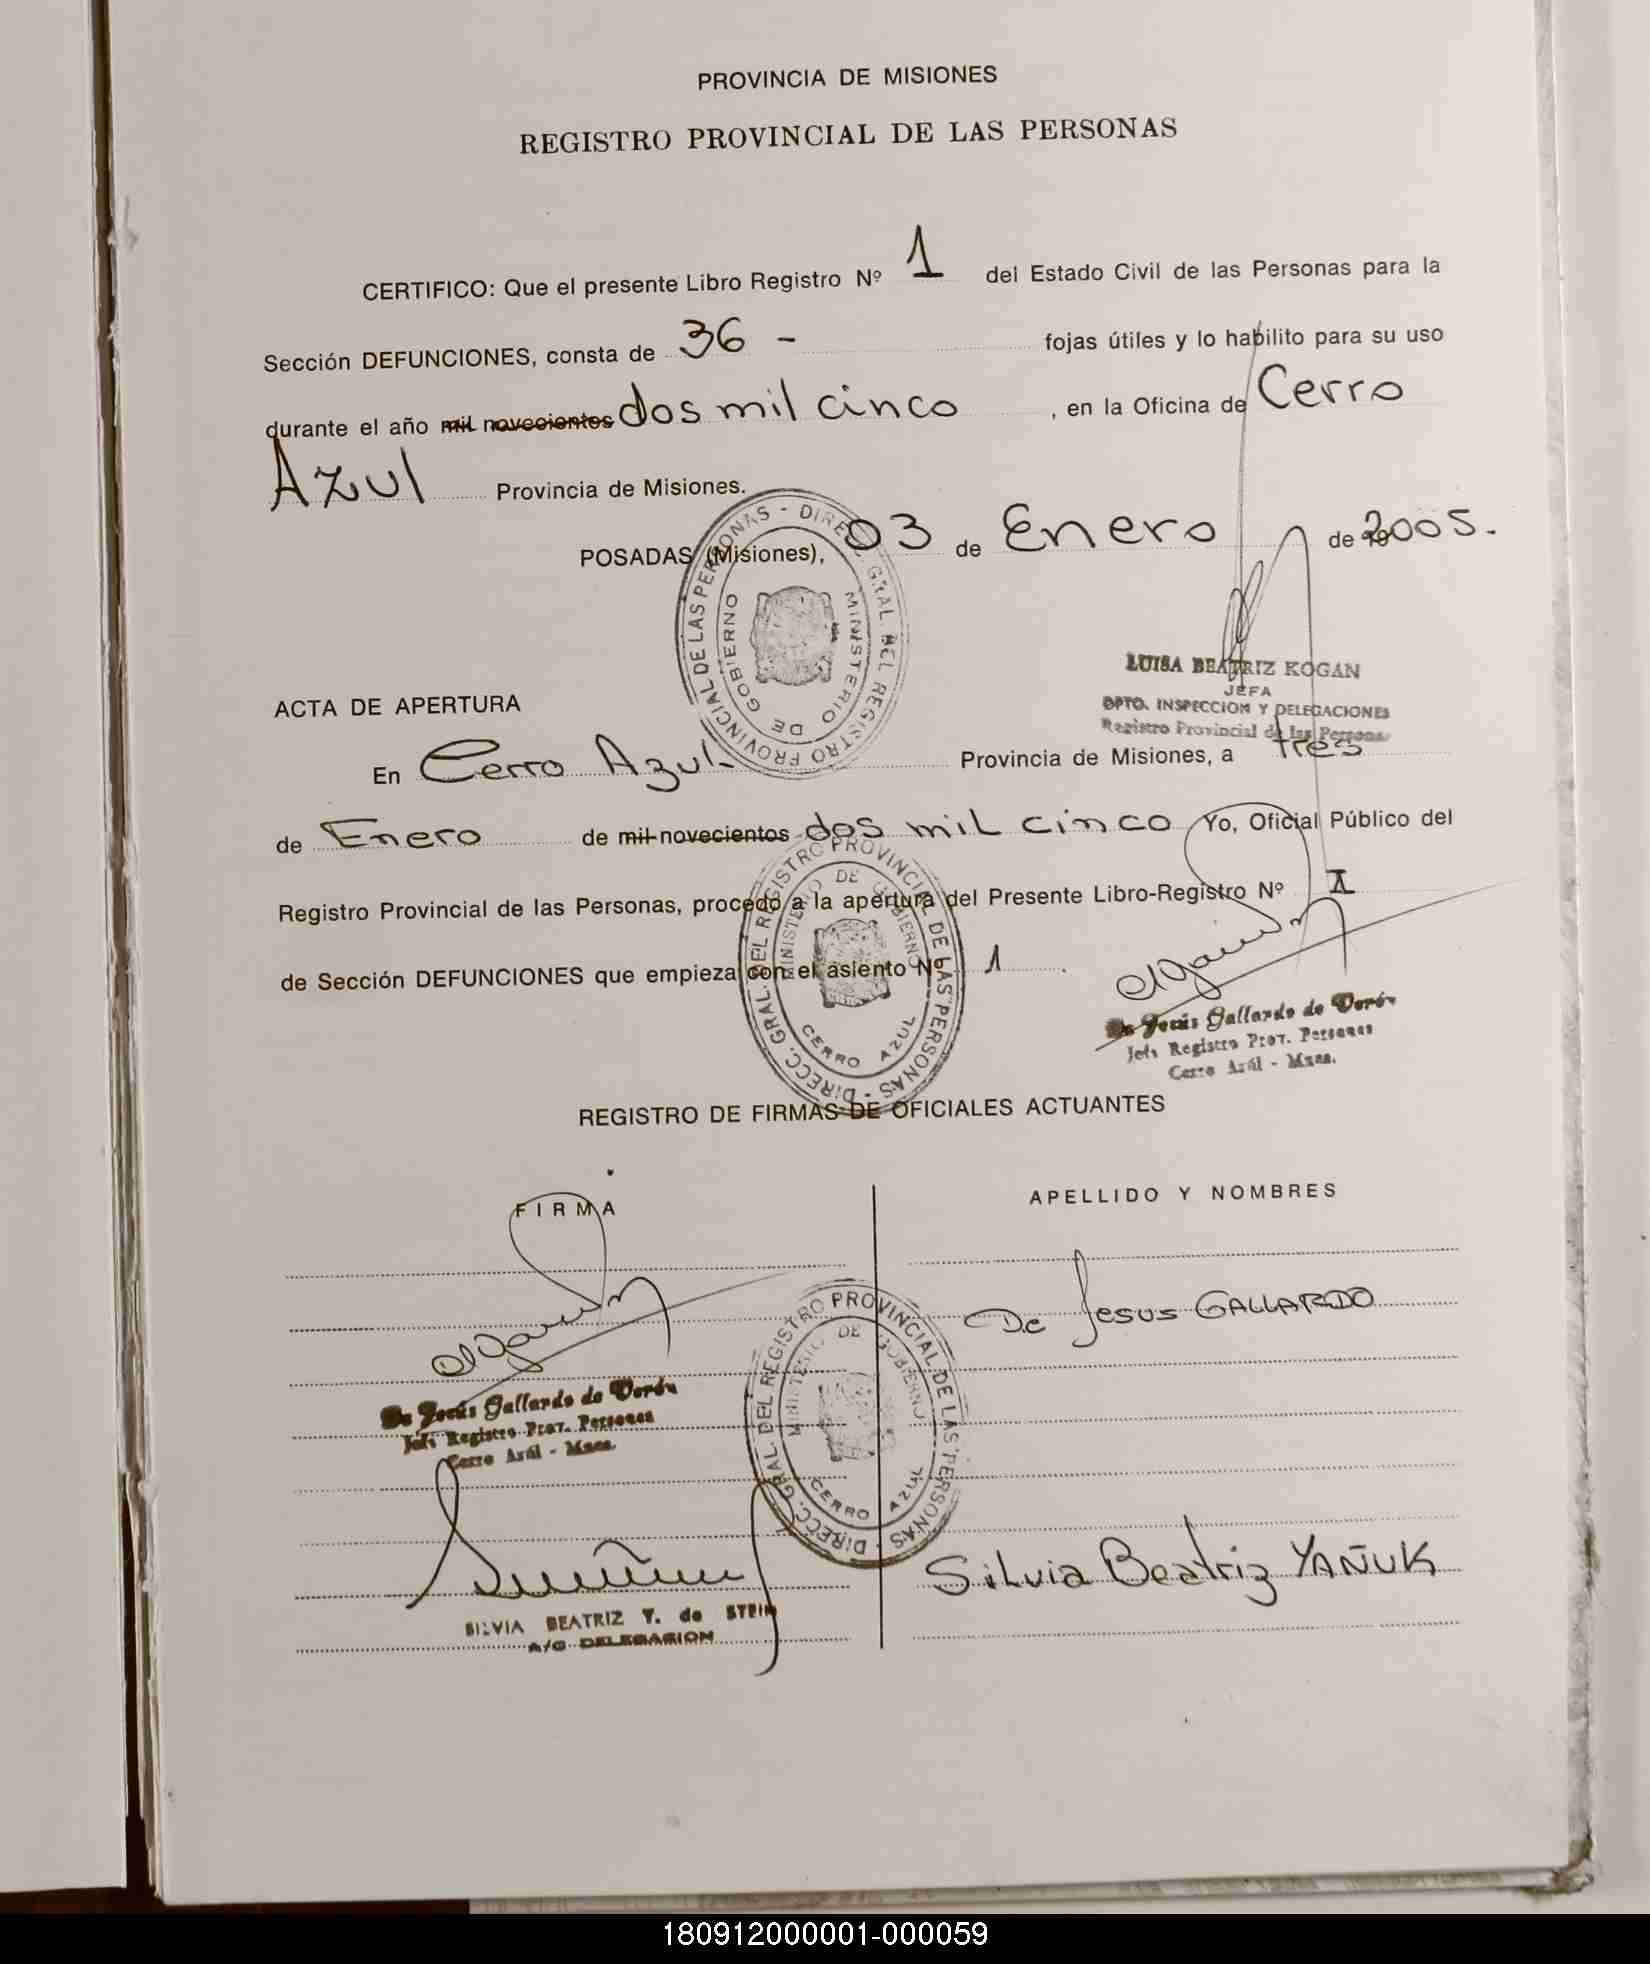 PROVINCIA DE MISIONES
REGISTRO PROVINCIAL DE LAS PERSONAS
CERTIFICO: Que el presente Libro Registro Nº 1 del Estado Civil de las Personas para la
Sección DEFUNCIONES, consta de 36 - fojas útiles y lo habilito para su uso
durante el año mil novecientos dos mil cinco, en la Oficina de Cerro
Azul Provincia de Misiones.
POSADAS (Misiones), 03 de Enero de 2005.
DIREC. GRAL. DEL REGISTRO PROVINCIAL DE LAS PERSONAS -
MINISTERIO DE GOBIERNO
LUISA BEATRIZ KOGAN
JEFA
DPTO. INSPECCION Y DELEGACIONES
Registro Provincial de las Personas
ACTA DE APERTURA
En Cerro Azul Provincia de Misiones, a tres
de Enero de mil novecientos dos mil cinco Yo, Oficial Público del
Registro Provincial de las Personas, procedo a la apertura del Presente Libro-Registro Nº I
de Sección DEFUNCIONES que empieza con el asiento Nº 1.
DIRECC. GRAL. DEL REGISTRO PROVINCIAL DE LAS PERSONAS -
MINISTERIO DE GOBIERNO
CERRO AZUL
De Jesús Gallardo de Verón
Jefa Registro Prov. Personas
Cerro Azúl - Mnes.
REGISTRO DE FIRMAS DE OFICIALES ACTUANTES
FIRMA APELLIDO Y NOMBRES
De Jesus GALLARDO
De Jesús Gallardo de Verón
Jefa Registro Prov. Personas
Cerro Azúl - Mnes.
DIRECC. GRAL. DEL REGISTRO PROVINCIAL DE LAS PERSONAS -
MINISTERIO DE GOBIERNO
CERRO AZUL
Silvia Beatriz YAÑUK
SILVIA BEATRIZ Y. de STEIN
A/C DELEGACION
180912000001-000059